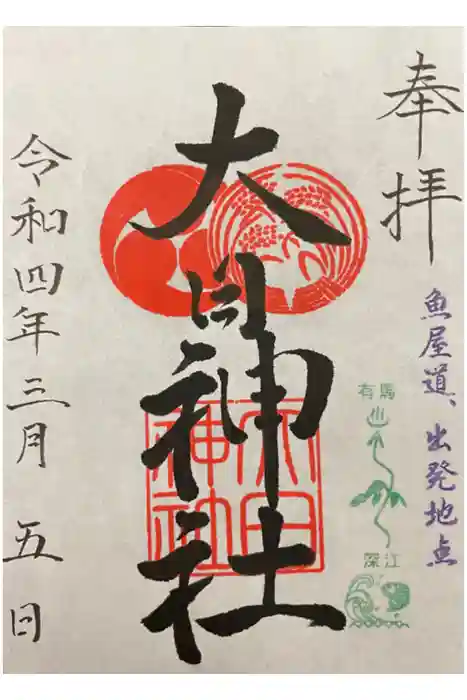 奉拝
魚屋道、出発地点
有馬
深江
大日神社
大日神社
令和四年三月 五日